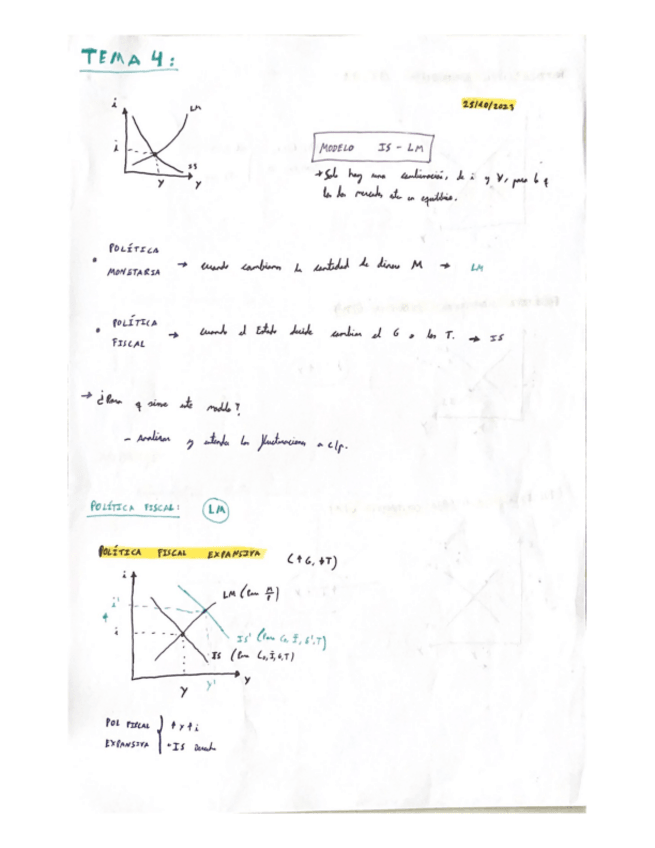 TEMA 4:
25/10/2023
i
LM
i
IS
Y
Y
MODELO IS - LM
→ Solo hay una combinación, de i y Y, para l q
los dos mercados esté en equilibrio.
• POLÍTICA MONETARIA → cuando cambiamos la cantidad de dinero M → LM
• POLÍTICA FISCAL → cuando el Estado decide cambiar el G o los T. → IS
→ ¿Para q sirve este modelo?
- Analizar y entender las fluctuaciones a c/p.
POLÍTICA FISCAL: LM
POLÍTICA FISCAL EXPANSIVA (↑G, ↓T)
i
LM (Para M/P)
i'
↑
i
IS' (Para C₀, Ī, G', T)
IS (Para C₀, Ī, G, T)
Y
Y
Y'
POL FISCAL EXPANSIVA
↑ y ↑ i
• IS Derecha